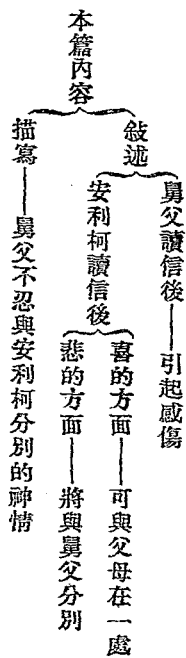 本篇內容
敍述
舅父讀信後——引起感傷
安利柯讀信後
喜的方面——可與父母在一處
悲的方面——將與舅父分別
描寫——舅父不忍與安利柯分別的神情